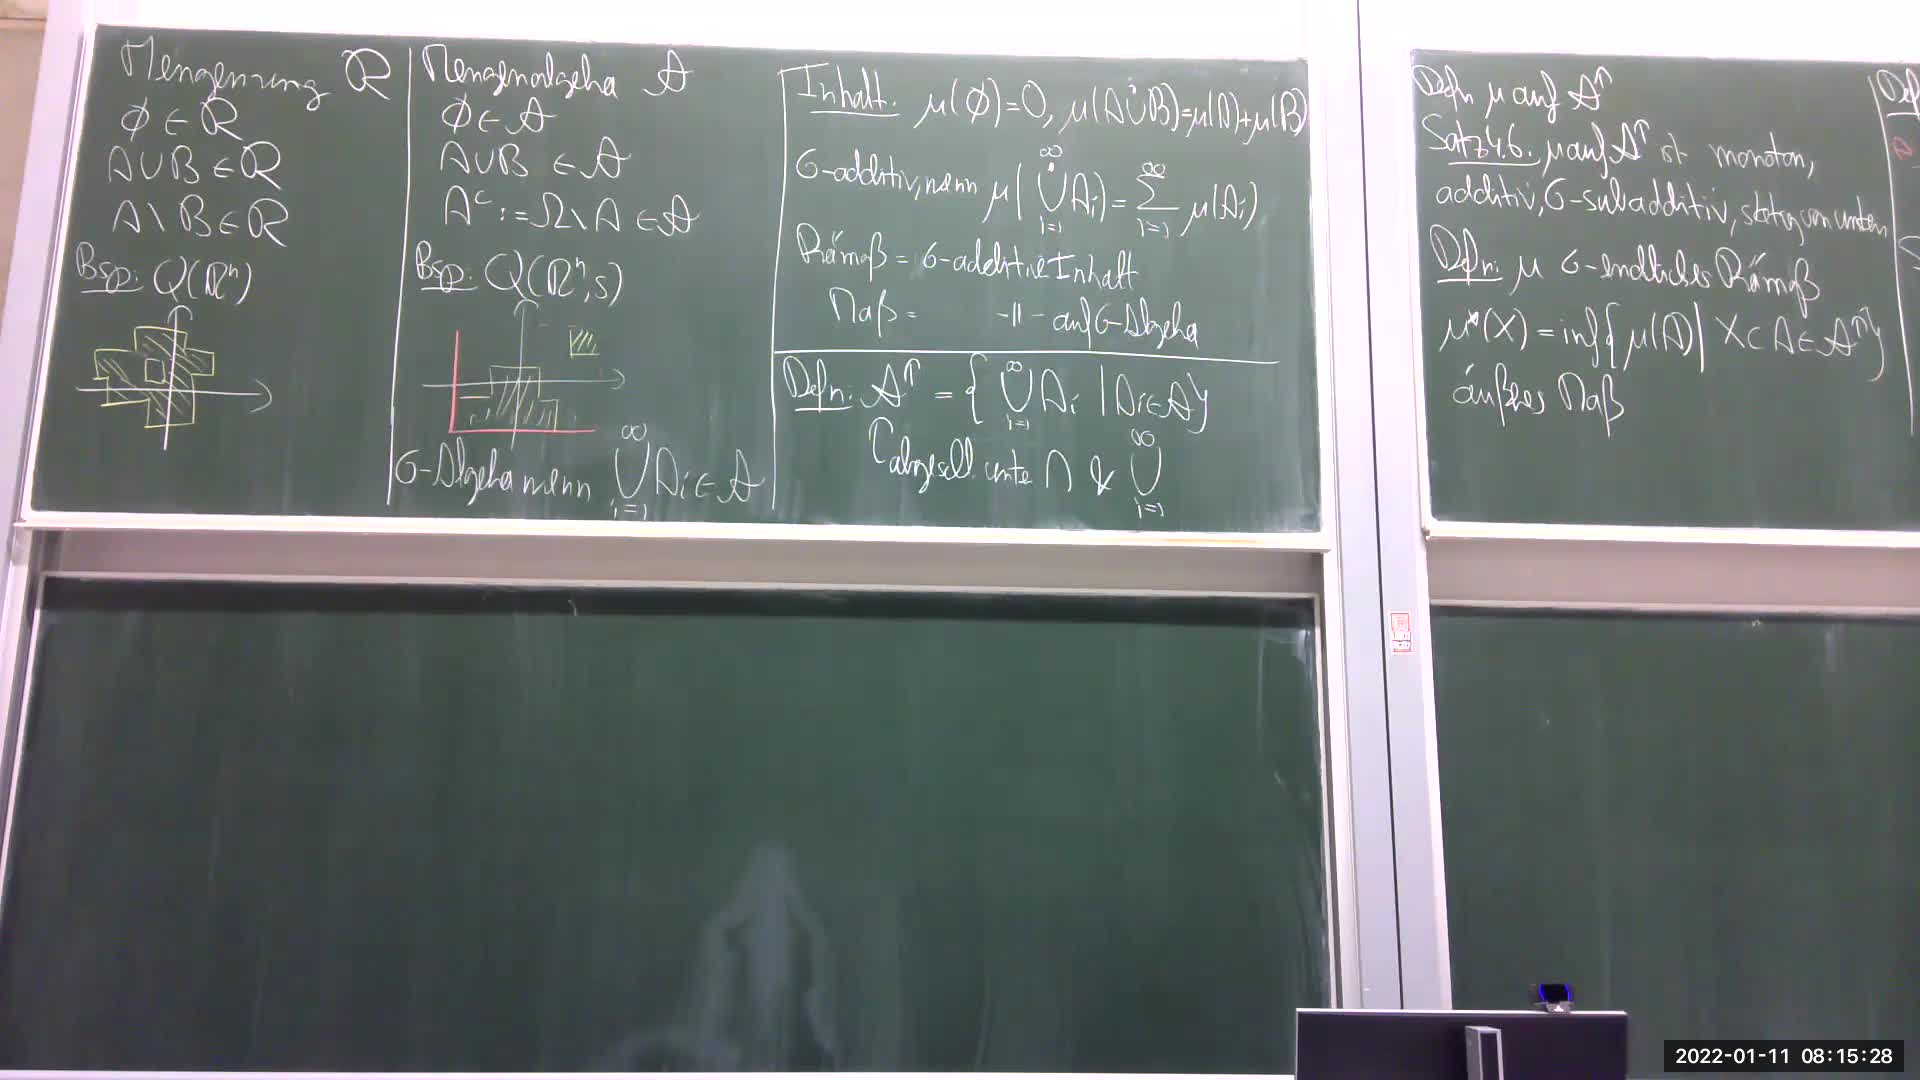 Mengenring R
∅ ∈ R
A∪B ∈ R
A\B ∈ R
Bsp.: Q(ℝⁿ)
Mengenalgebra A
∅ ∈ A
A∪B ∈ A
Aᶜ := Ω\A ∈ A
Bsp.: Q(ℝⁿ, s)
σ-Algebra wenn ⋃_{i=1}^∞ Ai ∈ A
Inhalt. μ(∅)=0, μ(A∪̇B)=μ(A)+μ(B)
σ-additiv, wenn μ(⋃̇_{i=1}^∞ Ai) = ∑_{i=1}^∞ μ(Ai)
Prämaß = σ-additive Inhalt
Maß = -||- auf σ-Algebra
Defn: A↑ = { ⋃_{i=1}^∞ Ai | Ai ∈ A }
abgeschl. unter ∩ & ⋃_{i=1}^∞
Defn μ auf A↑
Satz 4.6. μ auf A↑ ist monoton,
additiv, σ-subadditiv, stetig von unten
Defn: μ σ-endliches Prämaß
μ*(X) = inf{ μ(A) | X ⊂ A ∈ A↑ }
äußeres Maß
Def
2022-01-11 08:15:28